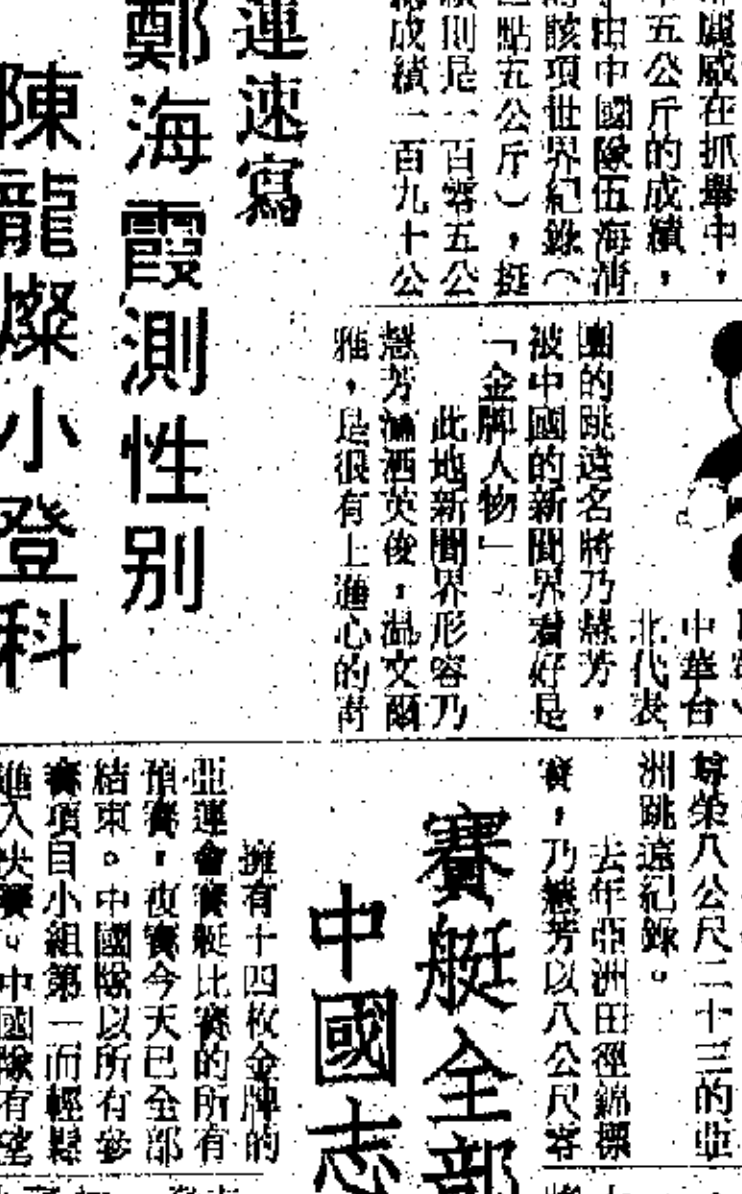 威在抓舉中，
五公斤的成績，
由中國隊伍海清
該項世界紀錄（
點五公斤），挺
則是一百零五公
成績一百九十公
連速寫
鄭海霞測性別
陳龍燦小登科
中華台
北代表
團的跳遠名將乃慧芳，
被中國的新聞界看好是
「金牌人物」。
此地新聞界形容乃
慧芳瀟洒英俊，温文爾
雅，是很有上進心的
尊榮八公尺二十三的亞
洲跳遠紀錄。
去年亞洲田徑錦標
賽，乃慧芳以八公尺零
賽艇全部
中國志
擁有十四枚金牌的
亞運會賽艇比賽的所有
預賽，復賽今天已全部
結束。中國隊以所有參
賽項目小組第一而輕鬆
進入決賽。中國隊有望